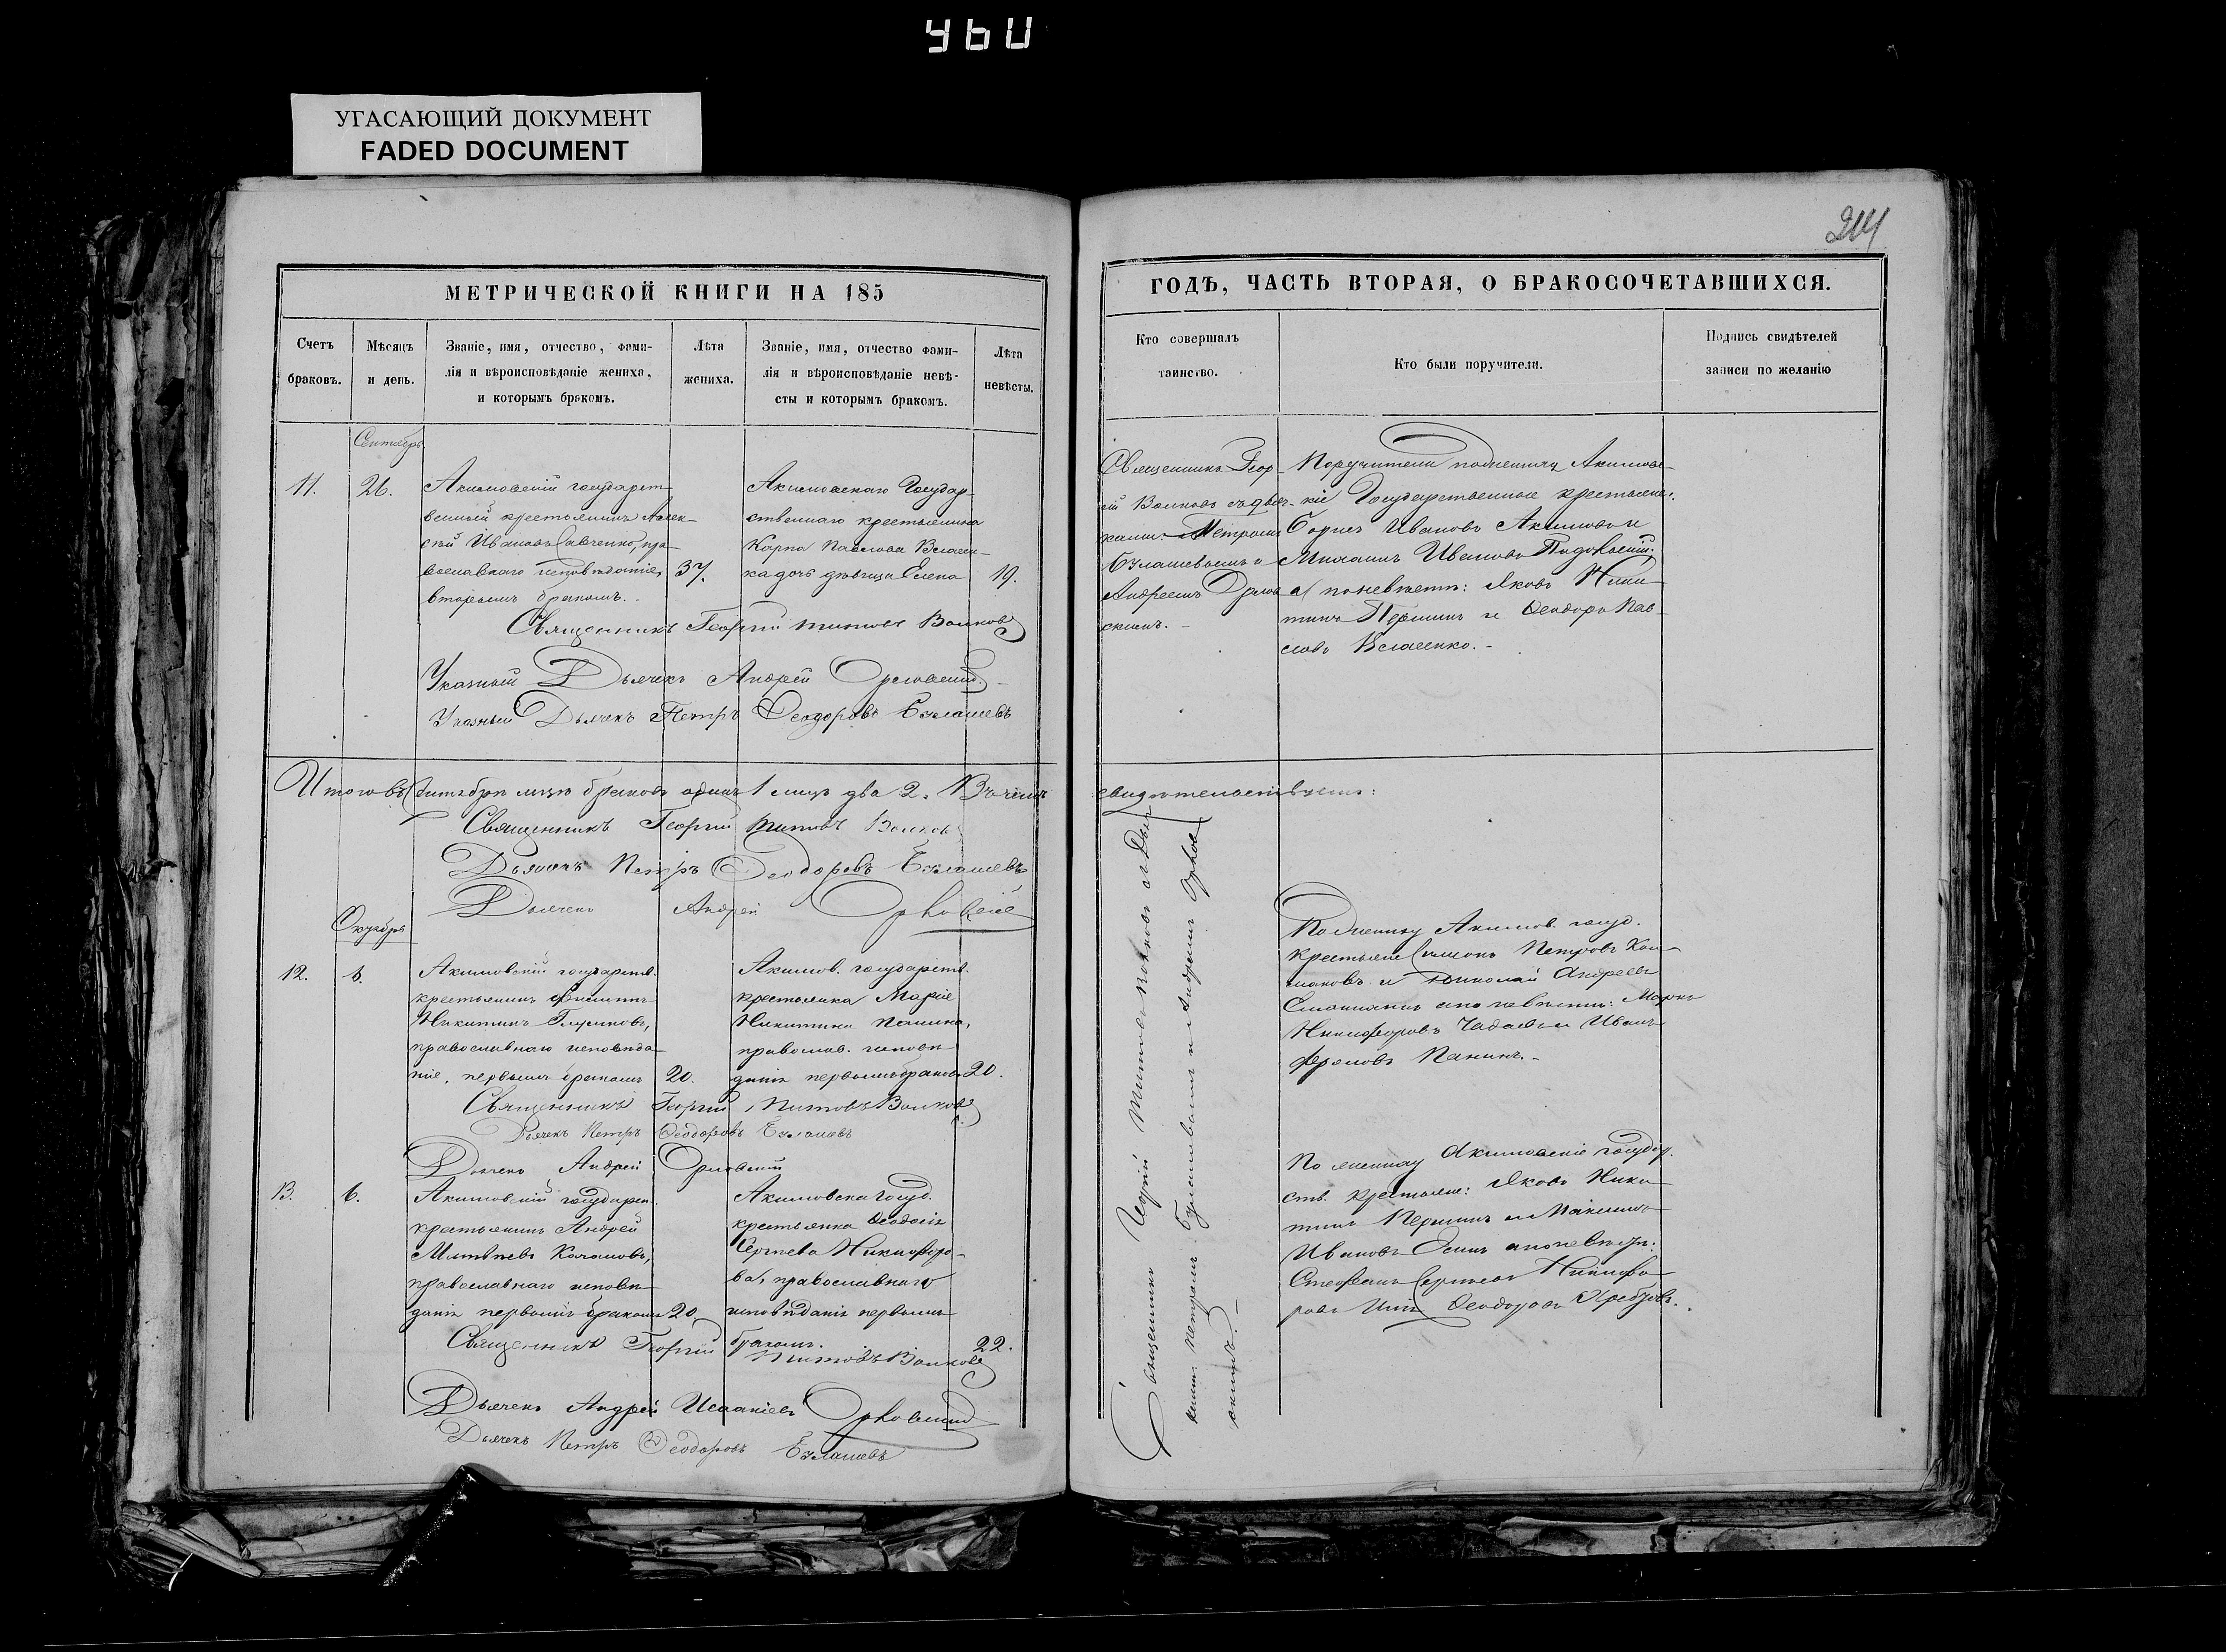 УГАСАЮЩИЙ ДОКУМЕНТ
FADED DOCUMENT
МЕТРИЧЕСКОЙ КНИГИ НА 185
Счетъ браковъ.
Мѣсяцъ и день.
Званіе, имя, отчество, фами-
лія и вѣроисповѣданіе жениха,
и которымъ бракомъ.
Лѣта жениха.
Званіе, имя, отчество фами-
лія и вѣроисповѣданіе невѣ-
сты и которымъ бракомъ.
Лѣта невѣсты.
Сентябрь
11.
26.
Акимовскій государст-
венный крестьянинъ Алек-
сѣй Ивановъ Савченко, пра-
вославнаго исповѣданія,
вторымъ бракомъ.
37.
Акимовскаго Государ-
ственнаго крестьянина
Карпа Павлова Власен-
ка дочь дѣвица Елена
19.
Священникъ Георгій Титовъ Волковъ
Указный Дьячекъ Андрей Орловскій
Указный Дьячекъ Петръ Ѳеодоровъ
Итого въ Сентябрѣ мцѣ браковъ одинъ 1 лицъ два 2. Въ чемъ
Священникъ Георгій Титовъ Волковъ
Дьячекъ Петръ Ѳеодоровъ
Дьячекъ Андрей Орловскій
Октябрь
12.
6.
Акимовскій государств.
крестьянинъ
Никитинъ
православнаго исповѣда-
ніе, первымъ бракомъ
20.
Акимов. государств.
крестьянка Марія
Никитина Панина,
православ. исповѣ-
данія первымъ браком
20.
Священникъ Георгій Титовъ Волковъ
Дьячекъ Петръ Ѳеодоровъ
Дьячекъ Андрей Орловскій
13.
6.
Акимовскій государст.
крестьянинъ Андрей
Матвѣевъ
православнаго исповѣ-
данія первымъ бракомъ
20.
Акимовска госуд.
крестьянка Ѳеодосія
Сергѣева Никифоро-
ва, православнаго
исповѣданія первымъ
бракомъ.
22.
Священникъ Георгій Титовъ Волковъ
Дьячекъ Андрей Исаакіевъ Орловскій
Дьячекъ Петръ Ѳеодоровъ
214
ГОДЪ, ЧАСТЬ ВТОРАЯ, О БРАКОСОЧЕТАВШИХСЯ.
Кто совершалъ таинство.
Кто были поручители.
Подпись свидѣтелей
записи по желанію
Священникъ Геор-
гій Волковъ съ дьяч-
ками: Петромъ
и
Андреемъ Орлов-
скимъ.
Поручители по женихѣ Акимовс-
кіе Государственные крестьяне:
Борисъ Ивановъ Акимовъ и
Михаилъ Ивановъ
а по невѣстѣ: Яковъ Ники-
тинъ Першинъ и Ѳеодоръ Пав-
ловъ Власенко.
свидѣтельствуемъ:
Священникъ Георгій Титовъ Волковъ съ Дьяч-
ками: Петромъ и Андреемъ Орлов-
скимъ.
По жениху Акимов. госуд.
крестьяне Симеонъ Петровъ
и Николай Андреевъ
а по невѣстѣ: Марко
Никифоровъ и Иванъ
Фроловъ Панинъ.
По жениху Акимовскіе государ.
ств. крестьяне: Яковъ Ники-
тинъ Першинъ и Максимъ
Ивановъ а по невѣстѣ:
Стефанъ Сергѣевъ Никифо-
ровъ Ѳеодоровъ